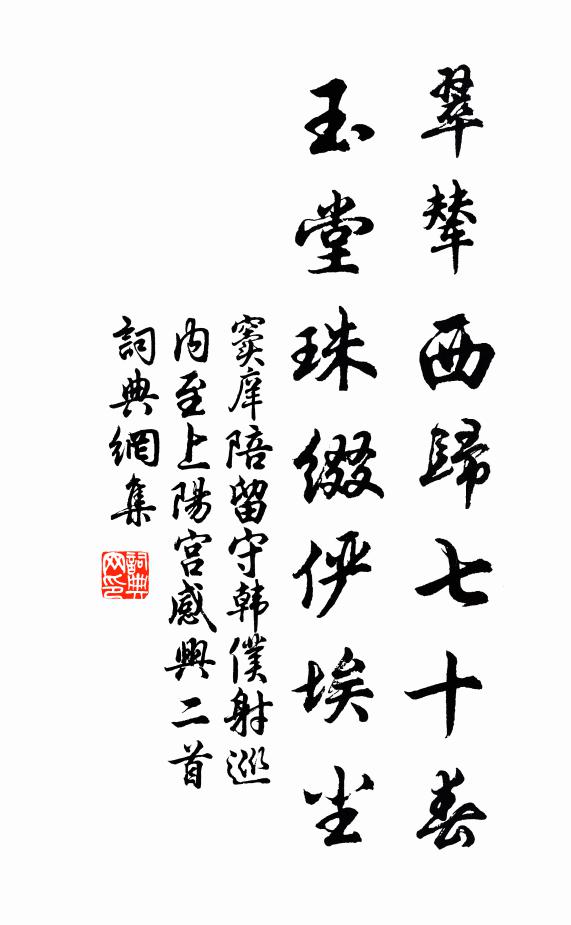 翠輦西歸七十春
玉堂珠綴俨埃尘
窦庠陪留守韩僕射巡
内至上陽宮感興二首
詞典網集
詞典网印